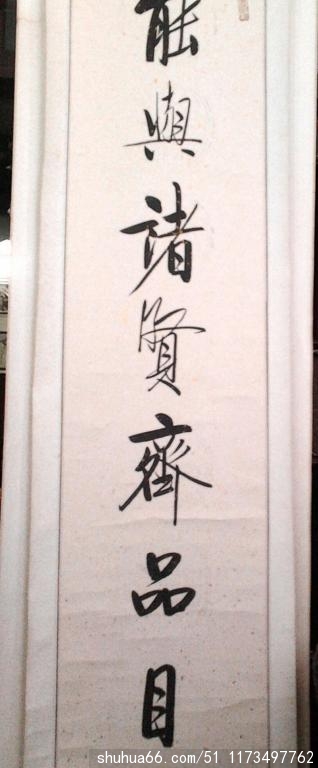 能與諸賢齊品目
shuhua66.com/51 1173497762